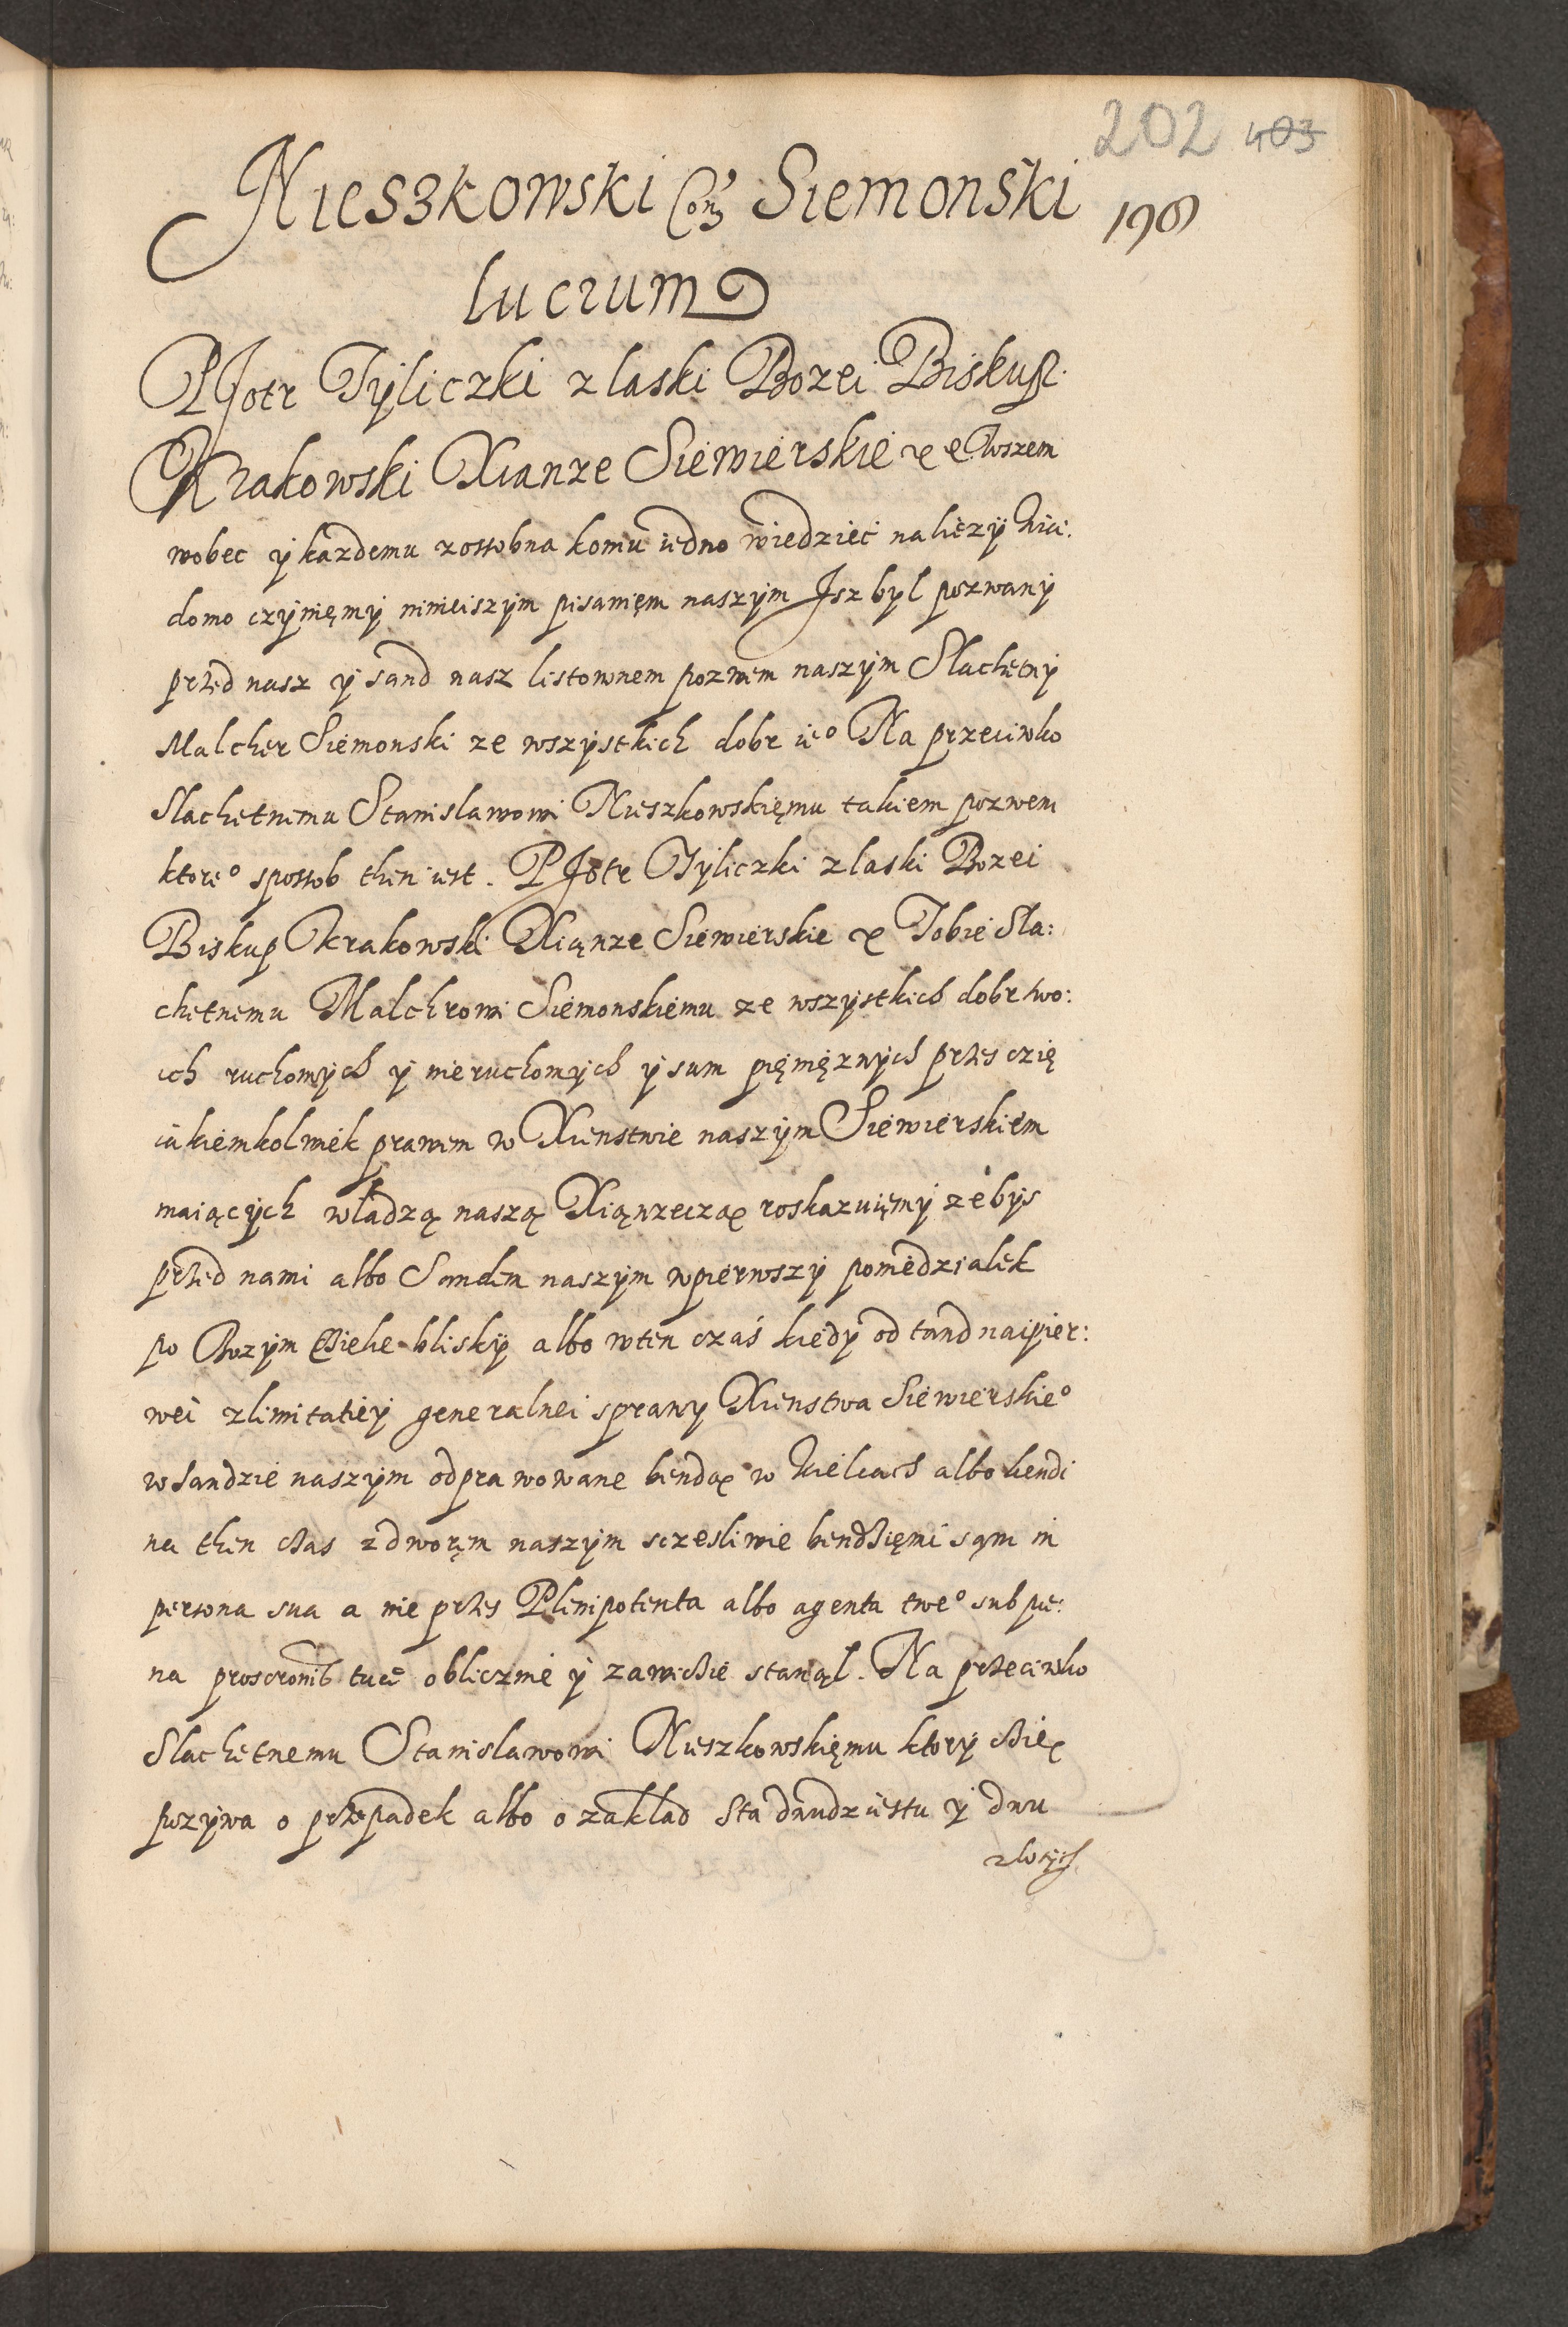 202 403
Nieszkowski Con Siemonski 198
lucrum
PJotr Tyliczki z laski Bozei Biskup
Krakowski Xianze Siewierskie etc Wszem
wobec y kazdemu zossobna komu iedno wiedziec naliezy Wia:
domo czyniemy ninieiszym pisaniem naszym Isz byl pozwany
przed nasz y sand nasz listownem pozwem naszym Slachetny
Malcher Siemonski ze wszystkich dobr ie° Na przeciwko
Slachetnemu Stanislawowi Nieszkowskięmu takiem pozwem
ktore° spossob then iest. PJotr Tyliczki z laski Bozei
Biskup Krakowski Xiąnze Siewierskie etc Tobie Sla:
chetnemu Malchrowi Siemonskiemu ze wszystkich dobr two:
ich ruchomych y nieruchomych y sum pięmięznych przes czię
iakiemkolwiek prawem w Xienstwie naszym Siewierskiem
maiących władzą naszą Xiąnzeczaę roskazuięmy zebys
przed nami albo Sandem naszym w pierwszy poniedzialek
po Bozym Ciele bliskÿ albo w ten czas kiedy od tand naipier:
wei z limitatiey generalnei sprawy Xienstwa Siewierskie°
w Sandzie naszym odprawowane bendaę w Kielcach albo kendi
na then czas z dworęm naszym sczesliwie bendzięmi sąm in
persona sua a nie przes Plenipotenta albo agenta twe° sub pae:
na proscrionis tuae oblicznie y zawicie stanąl. Na przeciwko
Slachetnemu Stanislawowi Nieszkowskięmu ktory cie
pozywa o przepadek albo o zakład Sta dwudziestu y dwu
zlotych